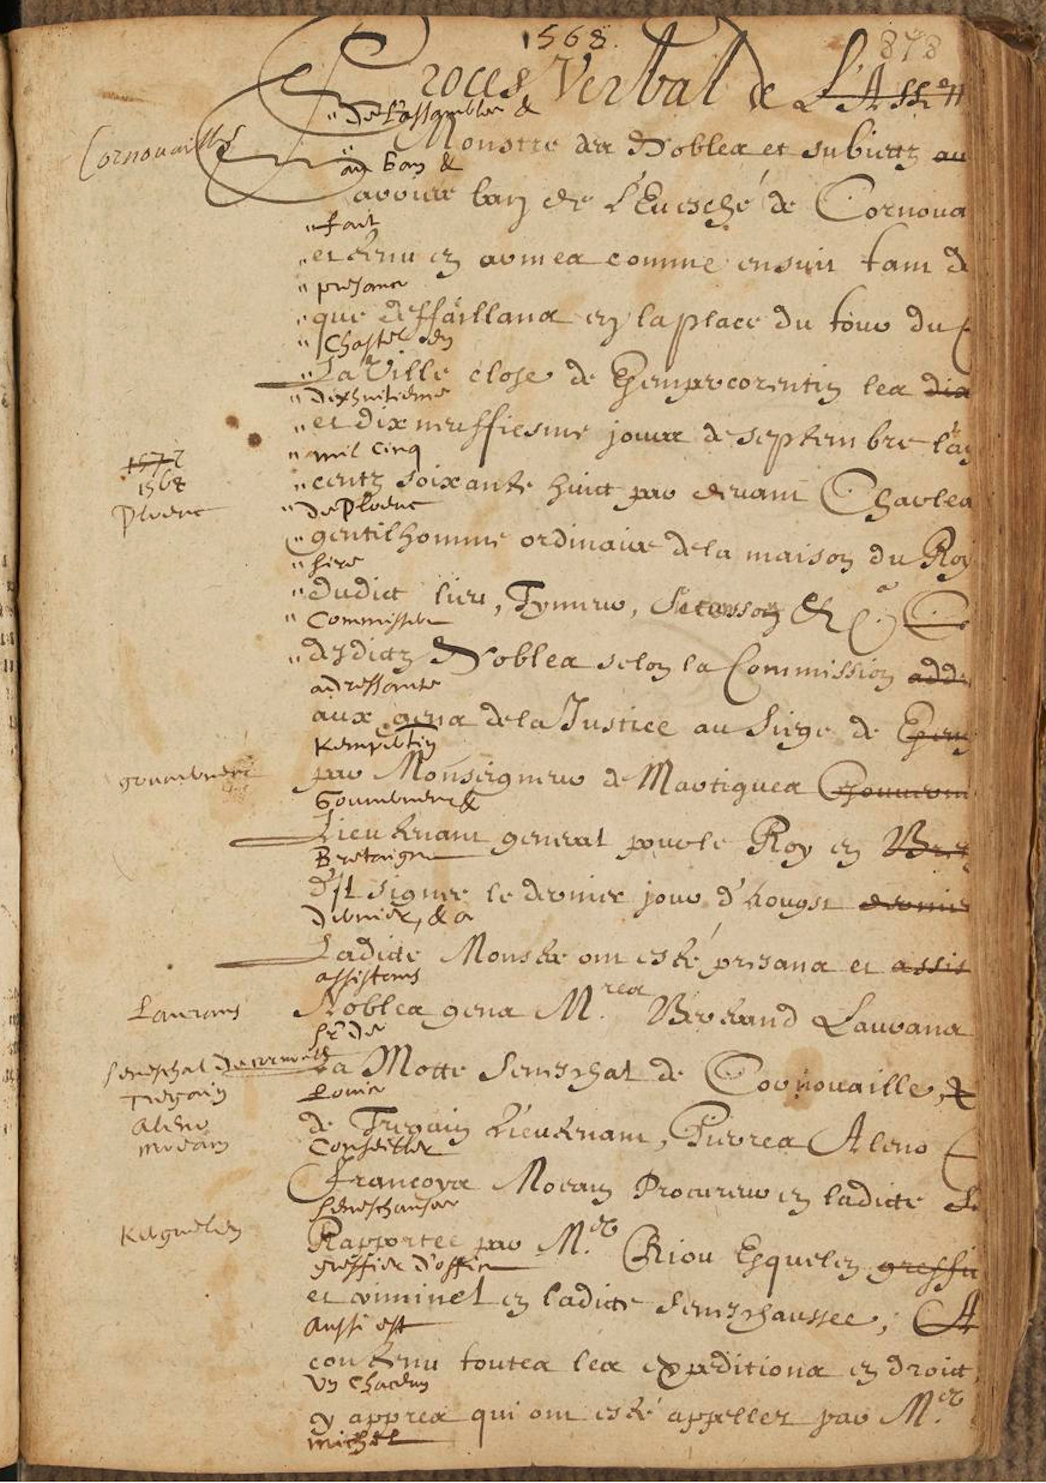 1568.
878
Proces Verbal de L'Assem
" de l'assemblee &
Cornouailles
Monstre des Nobles et subiectz au
" au ban &
arriere ban de L'Evesché de Cornoua
" fait
" et tenu en armes comme ensuit tant d
" presans
" que deffaillans en la place du tour du C
" Chastel en
" La Ville close de Kempercorentin les dix
" dixhuitiesme
" et dix neuffiesme jours de septembre l'an
" mil cinq
1568
" centz soixante huict par devant Charles
Ploeuc
" de Ploeuc
" gentilhomme ordinaire de la maison du Roy
" sire
" dudict lieu, Tymeur, &c.a
" Commissaire
" desdictz Nobles selon la Commission addr
adressante
aux gens de la Justice au Siege de
par Monseigneur de Martigues Gouvern
Gouverneur &
Lieutenant general pour le Roy en Bret
Bretaigne
signee le dernier jour d'Aougst dernier
Dernier, & a
Ladicte Monstre ont esté presans et assis
assistans
Laurans
Nobles gens M.res Bertrand Laurans
Sr de
La Motte Seneschal de Cornouaille, &
Louis
Tregain
de Tregain Lieutenant, Pierres Aleno C
Aleno
Conseiller
Moeam
Francoys Moeam Procureur en ladicte S
Seneschaussee
Rapportee par M.e Riou Esquelen greffie
greffier d'office
et criminel en ladicte Seneschaussee, A
Aussi est
contenu toutes les expeditions en droict
un chacun
cy appres qui ont esté appellez par M.e
Michel